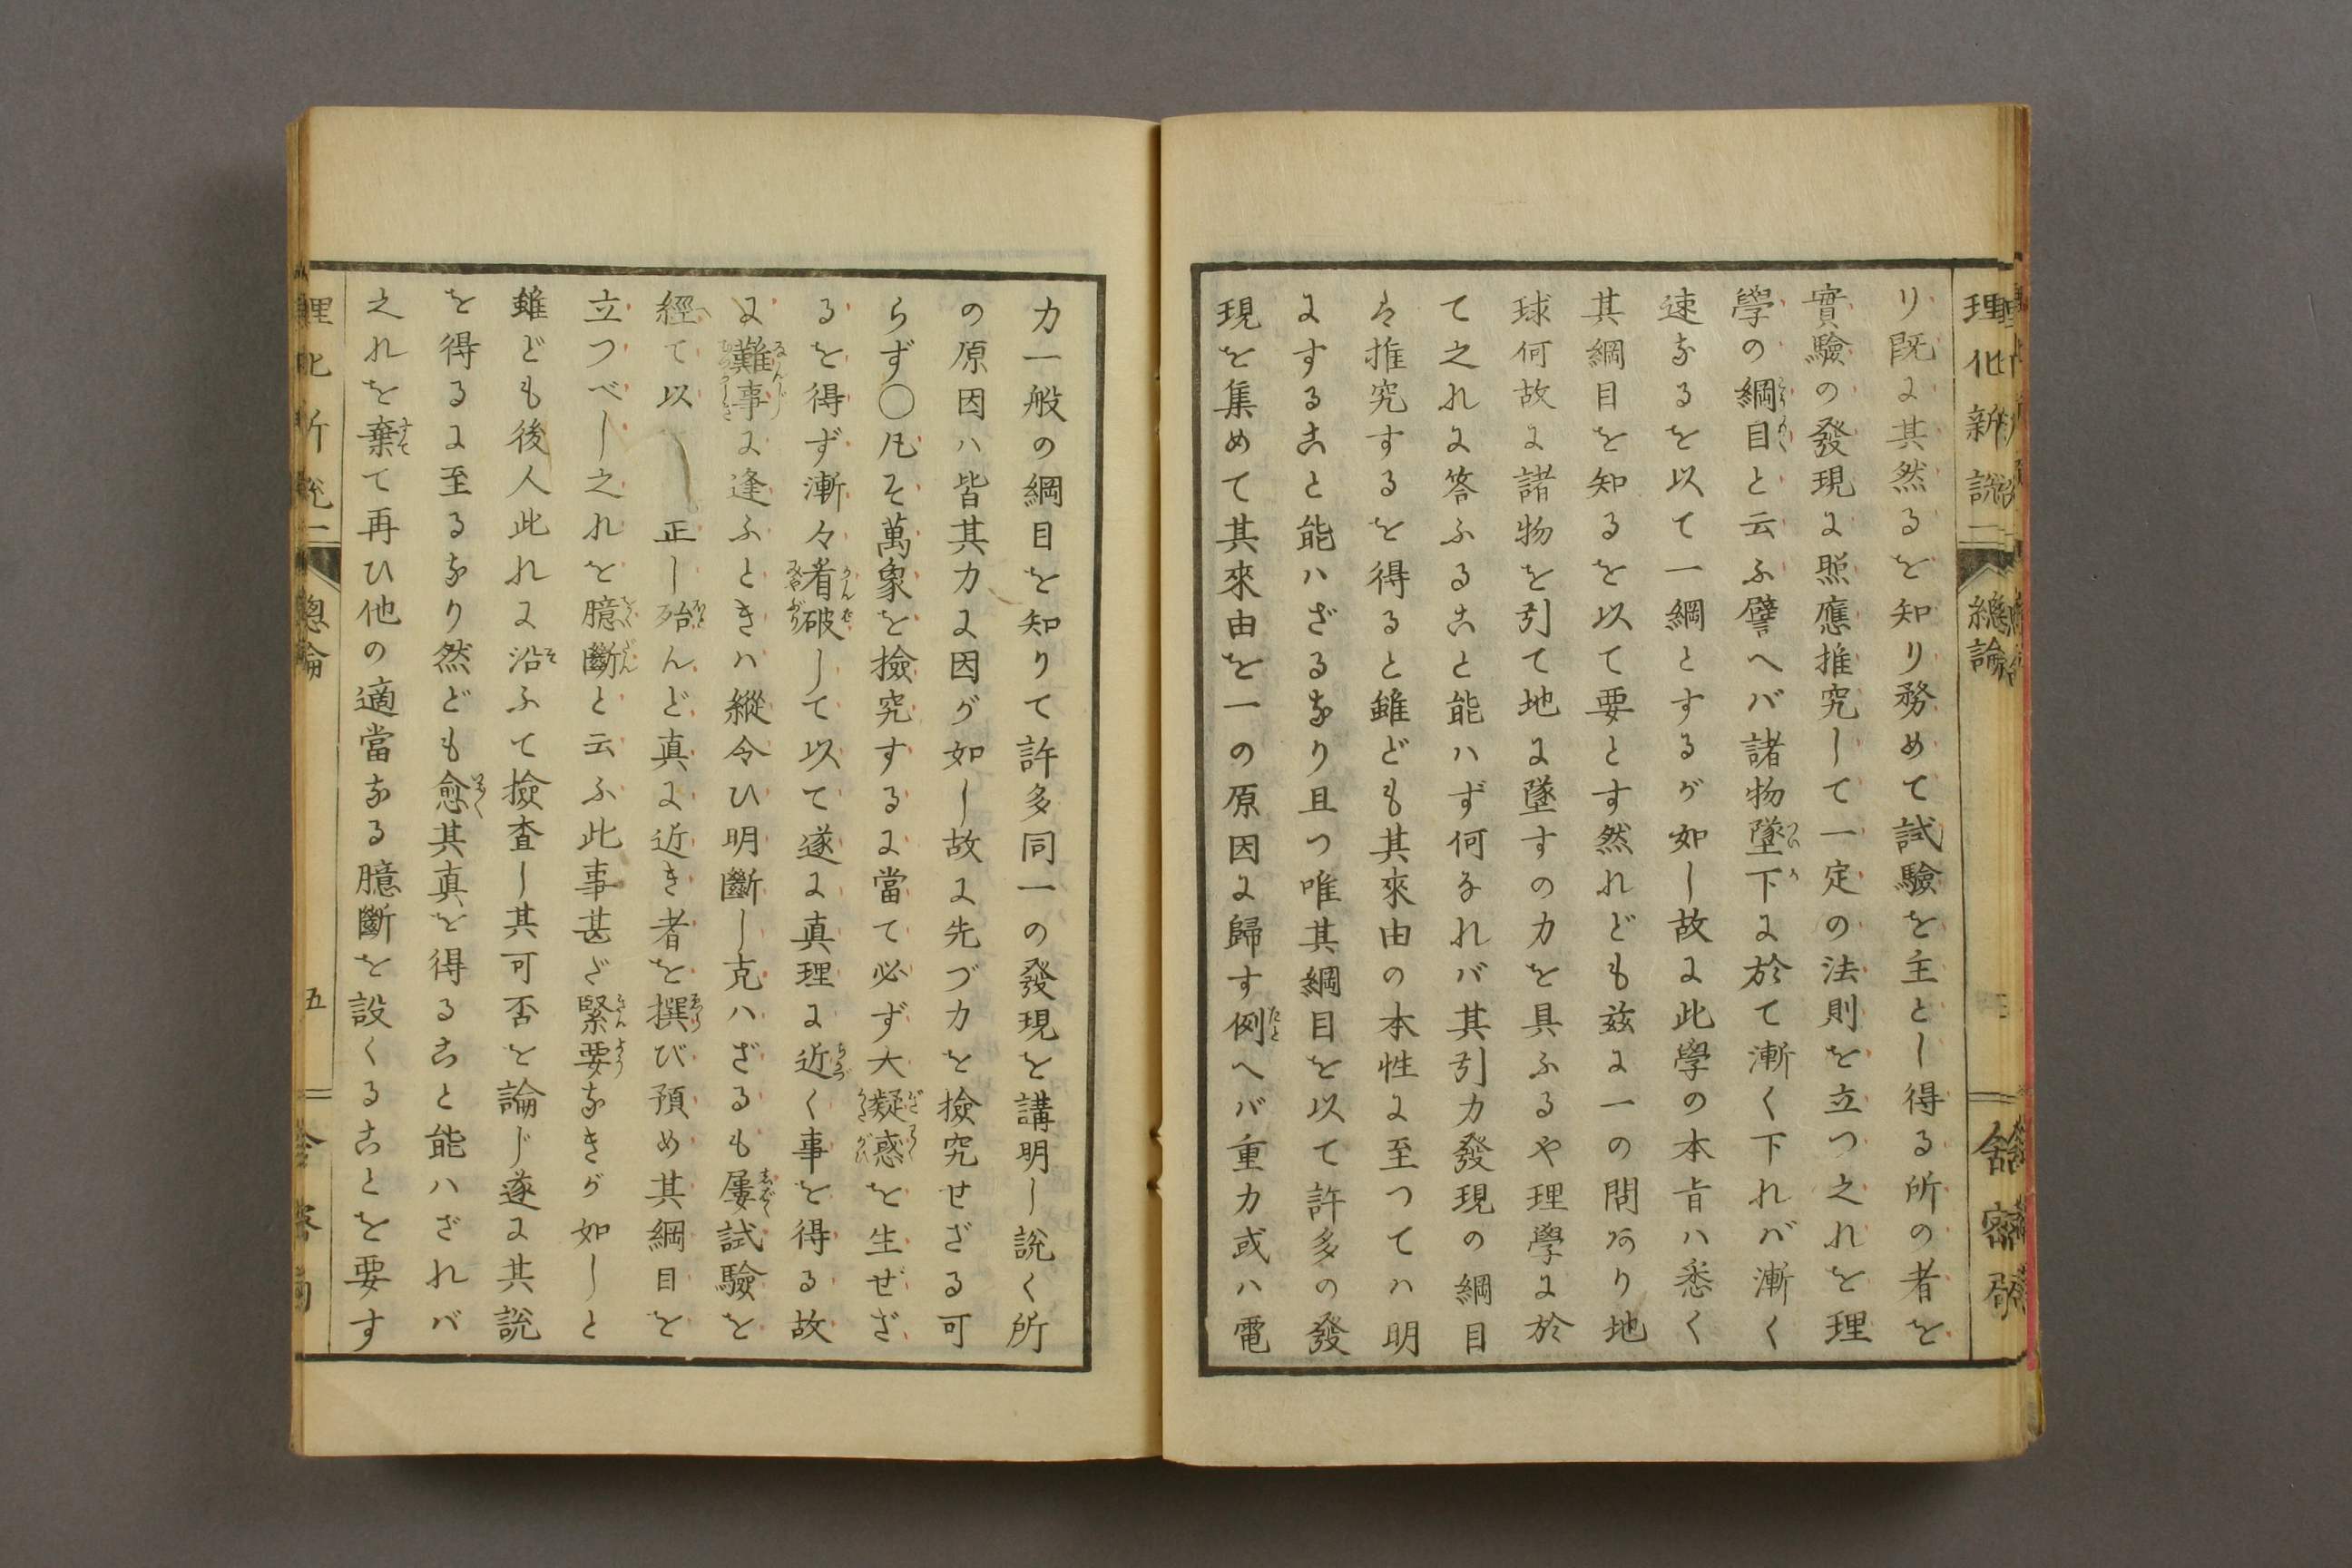 理化新説二 總論 舎密局
り既に其然るを知り務めて試驗を主とし得る所の者を
實驗の發現に照應推究して一定の法則を立つ之れを理
學の綱目と云ふ譬へバ諸物墜下に於て漸く下れバ漸く
速なるを以て一綱とするが如し故に此學の本旨ハ悉く
其綱目を知るを以て要とす然れども茲に一の問あり地
球何故に諸物を引て地に墜すの力を具ふるや理學に於
て之れに答ふること能ハず何なれバ其引力發現の綱目
ハ推究するを得ると雖ども其來由の本性に至つてハ明
にすること能ハざるなり且つ唯其綱目を以て許多の發
現を集めて其來由を一の原因に歸す例へバ重力或ハ電
力一般の綱目を知りて許多同一の發現を講明し説く所
の原因ハ皆其力に因が如し故に先づ力を撿究せざる可
らず〇凡そ萬象を撿究するに當て必ず大凝惑を生ぜざ
るを得ず漸々看破して以て遂に真理に近く事を得る故
に難事に逢ふときハ縱令ひ明斷し克ハざるも屢試驗を
經て以 正し殆んど真に近き者を撰び預め其綱目を
立つべし之れを臆斷と云ふ此事甚ざ緊要なきが如しと
雖ども後人此れに沿ふて撿査し其可否を論じ遂に其説
を得るに至るなり然ども愈其真を得ること能ハざれバ
之れを棄て再ひ他の適當なる臆斷を設くることを要す
理化新説二 總論 五 舎密局